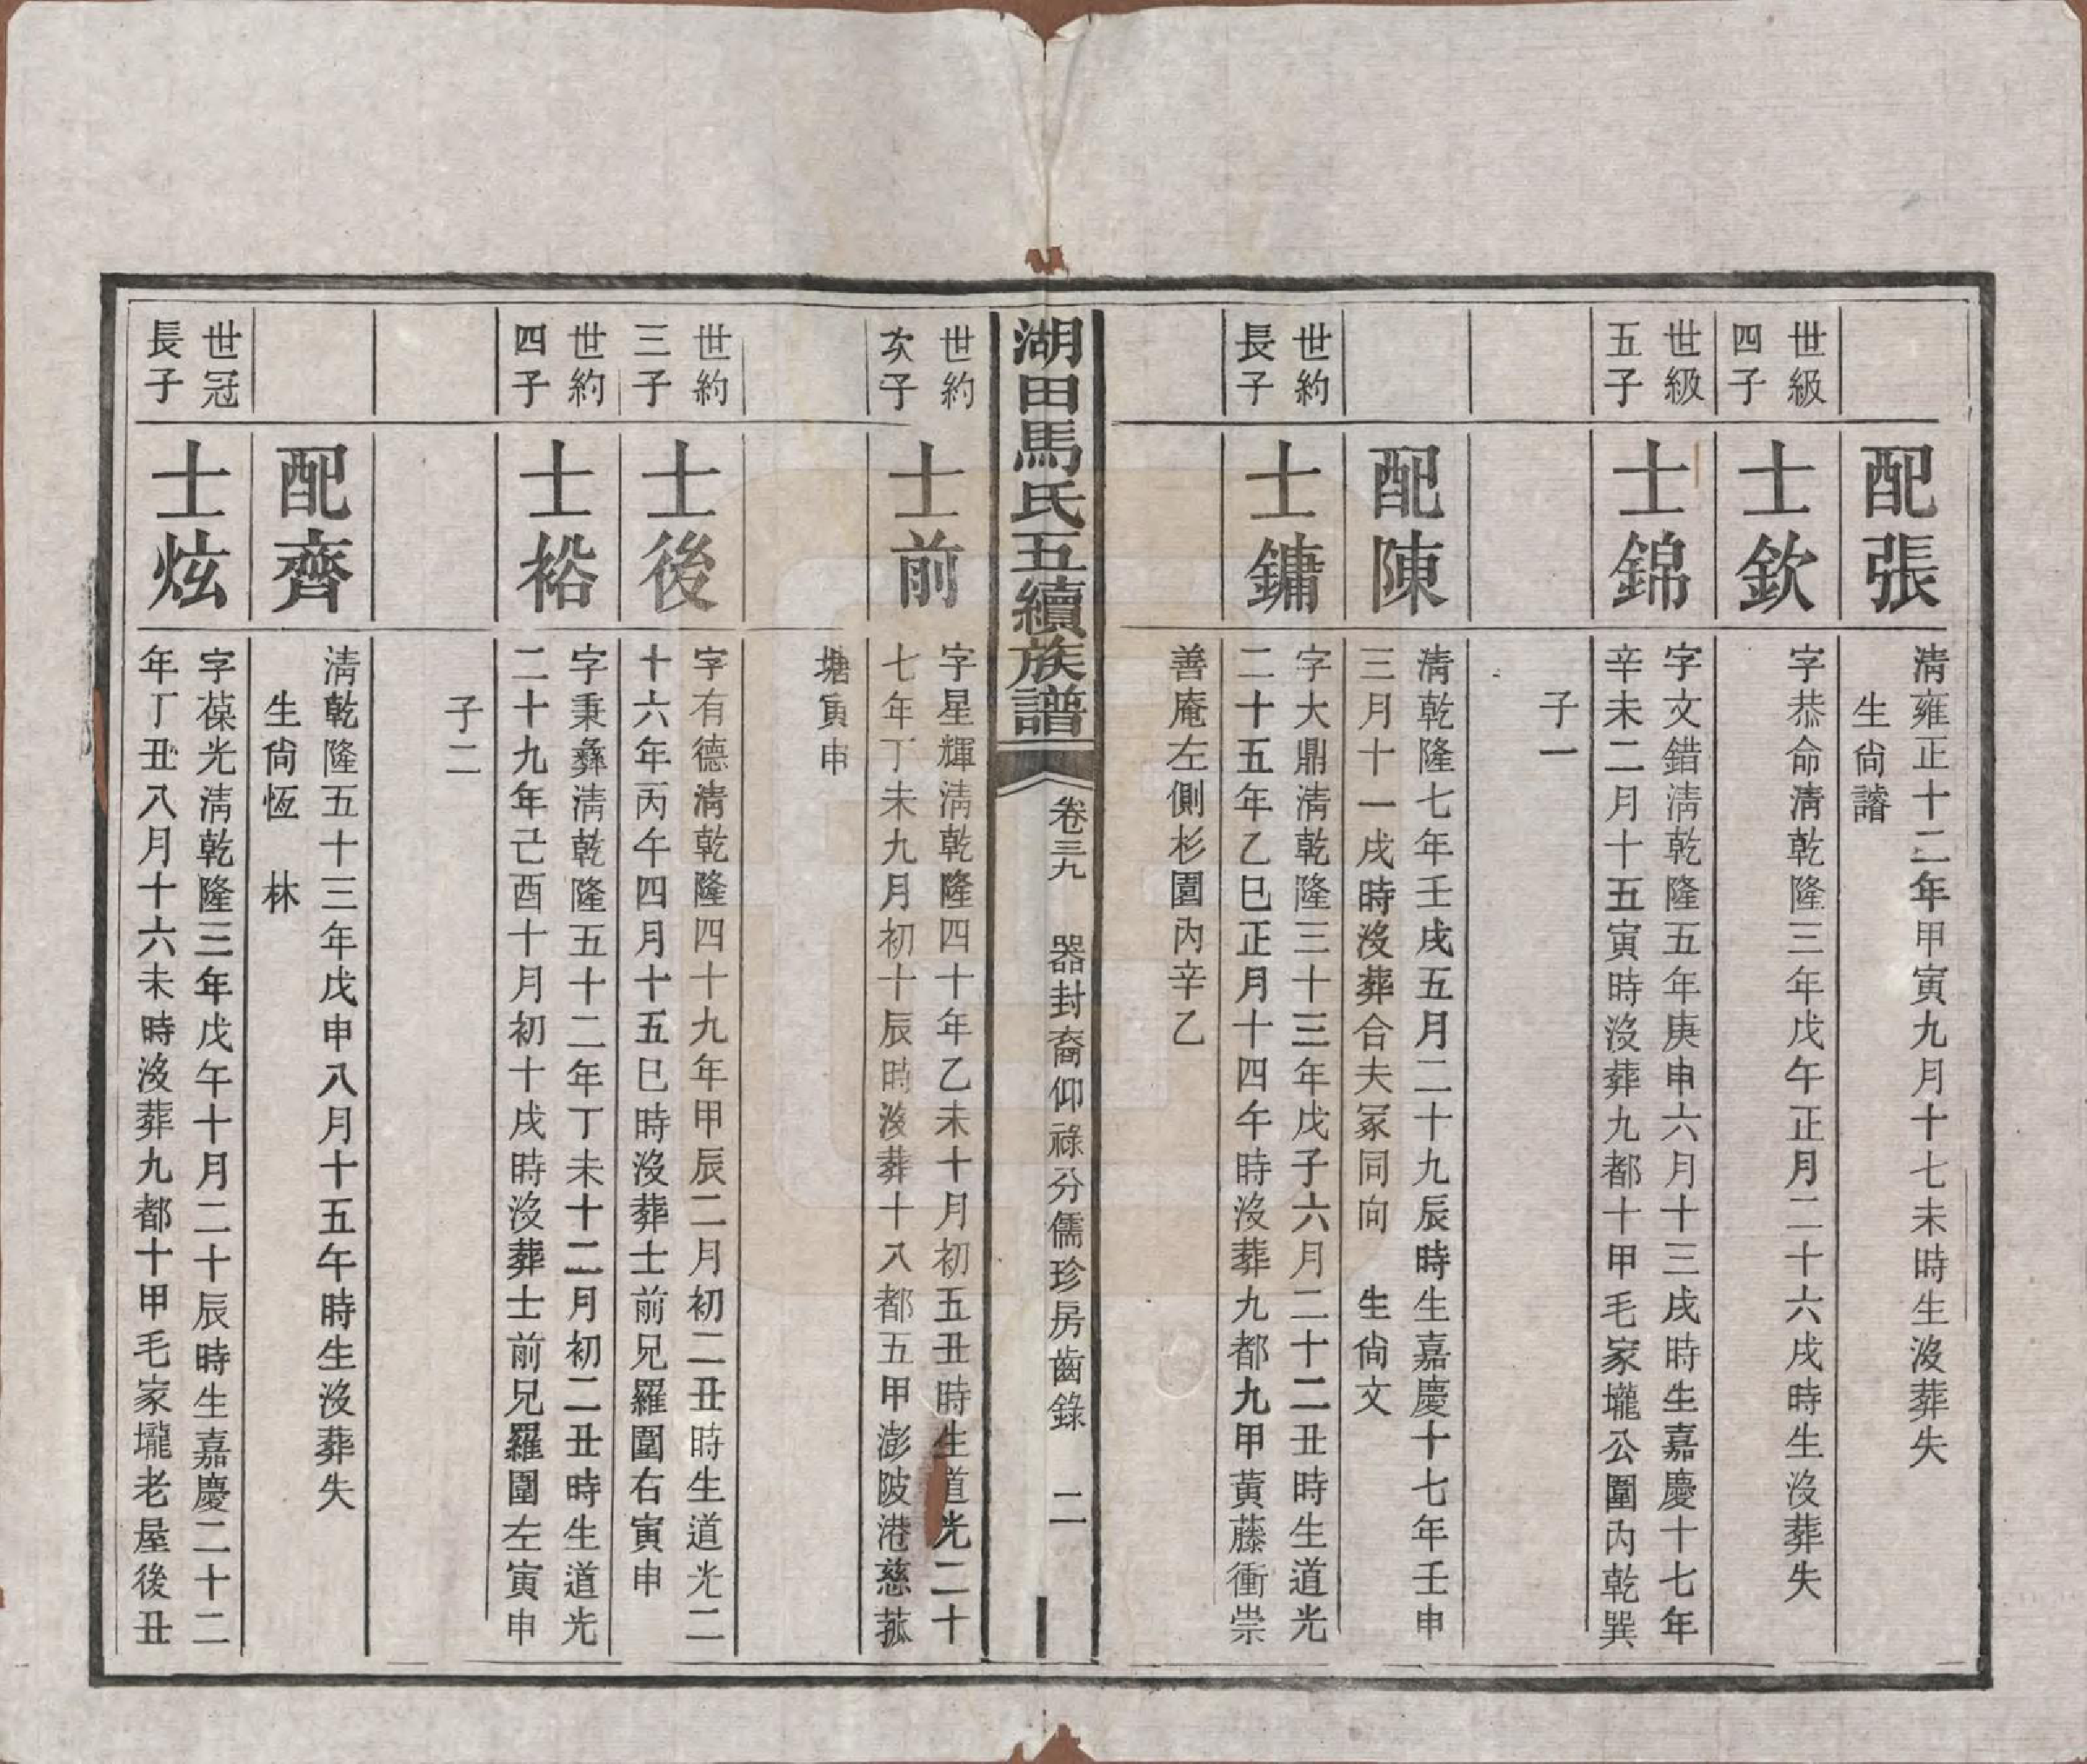 配張
清雍正十二年甲寅九月十七未時生沒葬失
生尙譜
世級
四子
士欽
字恭命淸乾隆三年戊午正月二十六戌時生沒葬失
世級
五子
士錦
字文錯淸乾隆五年庚申六月十三戌時生嘉慶十七年
辛未二月十五寅時沒葬九都十甲毛家壠公圍內乾巽
子一
配陳
淸乾隆七年壬戌五月二十九辰時生嘉慶十七年壬申
三月十一戌時沒葬合夫冢同向 生尙文
世約
長子
士鏞
字大鼎淸乾隆三十三年戊子六月二十二丑時生道光
二十五年乙巳正月十四午時沒葬九都九甲黃藤衝崇
善庵左側杉園內辛乙
湖田馬氏五續族譜
卷三九 器封裔仰祿分儒珍房齒錄 二
世約
次子
士前
字星輝淸乾隆四十年乙未十月初五丑時生道光二十
七年丁未九月初十辰時沒葬十八都五甲澎陂港慈菰
塘寅申
世約
三子
士後
字有德淸乾隆四十九年甲辰二月初二丑時生道光二
十六年丙午四月十五巳時沒葬士前兄羅圍右寅申
世約
四子
士裕
字秉彝淸乾隆五十二年丁未十二月初二丑時生道光
二十九年己酉十月初十戌時沒葬士前兄羅圍左寅申
子二
配齊
淸乾隆五十三年戊申八月十五午時生沒葬失
生尙恆 林
世冠
長子
士炫
字葆光淸乾隆三年戊午十月二十辰時生嘉慶二十二
年丁丑八月十六未時沒葬九都十甲毛家壠老屋後丑